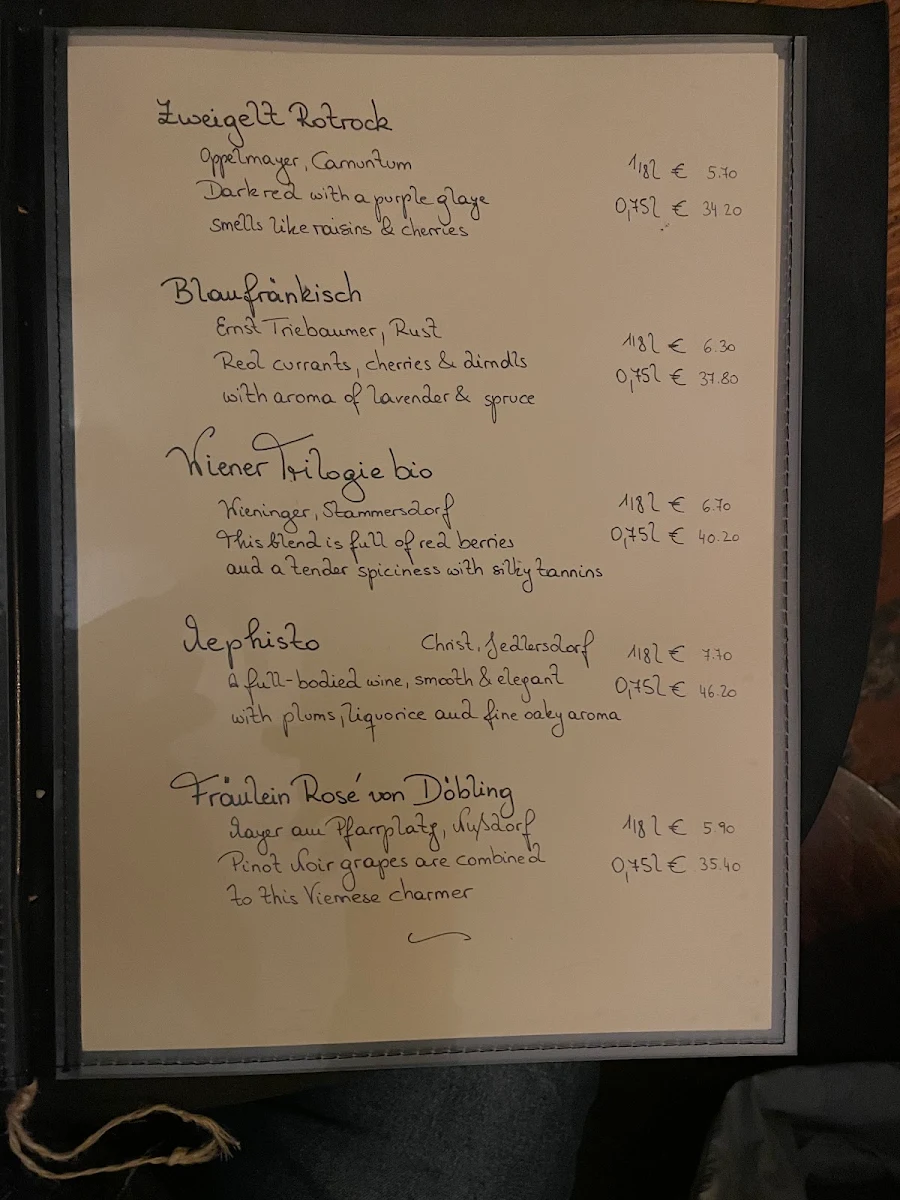 Zweigelt Rotrock
Oppelmayer, Carnuntum 1/8l € 5.70
Dark red with a purple glaze 0,75l € 34.20
smells like raisins & cherries
Blaufränkisch
Ernst Triebaumer, Rust 1/8l € 6.30
Red currants, cherries & dirndls 0,75l € 37.80
with aroma of lavender & spruce
Wiener Trilogie bio
Wieninger, Stammersdorf 1/8l € 6.70
This blend is full of red berries 0,75l € 40.20
and a tender spiciness with silky tannins
Mephisto Christ, Jedlersdorf 1/8l € 7.70
A full-bodied wine, smooth & elegant 0,75l € 46.20
with plums, liquorice and fine oaky aroma
Fräulein Rosé von Döbling
Mayer am Pfarrplatz, Nußdorf 1/8l € 5.90
Pinot Noir grapes are combined 0,75l € 35.40
to this Viennese charmer